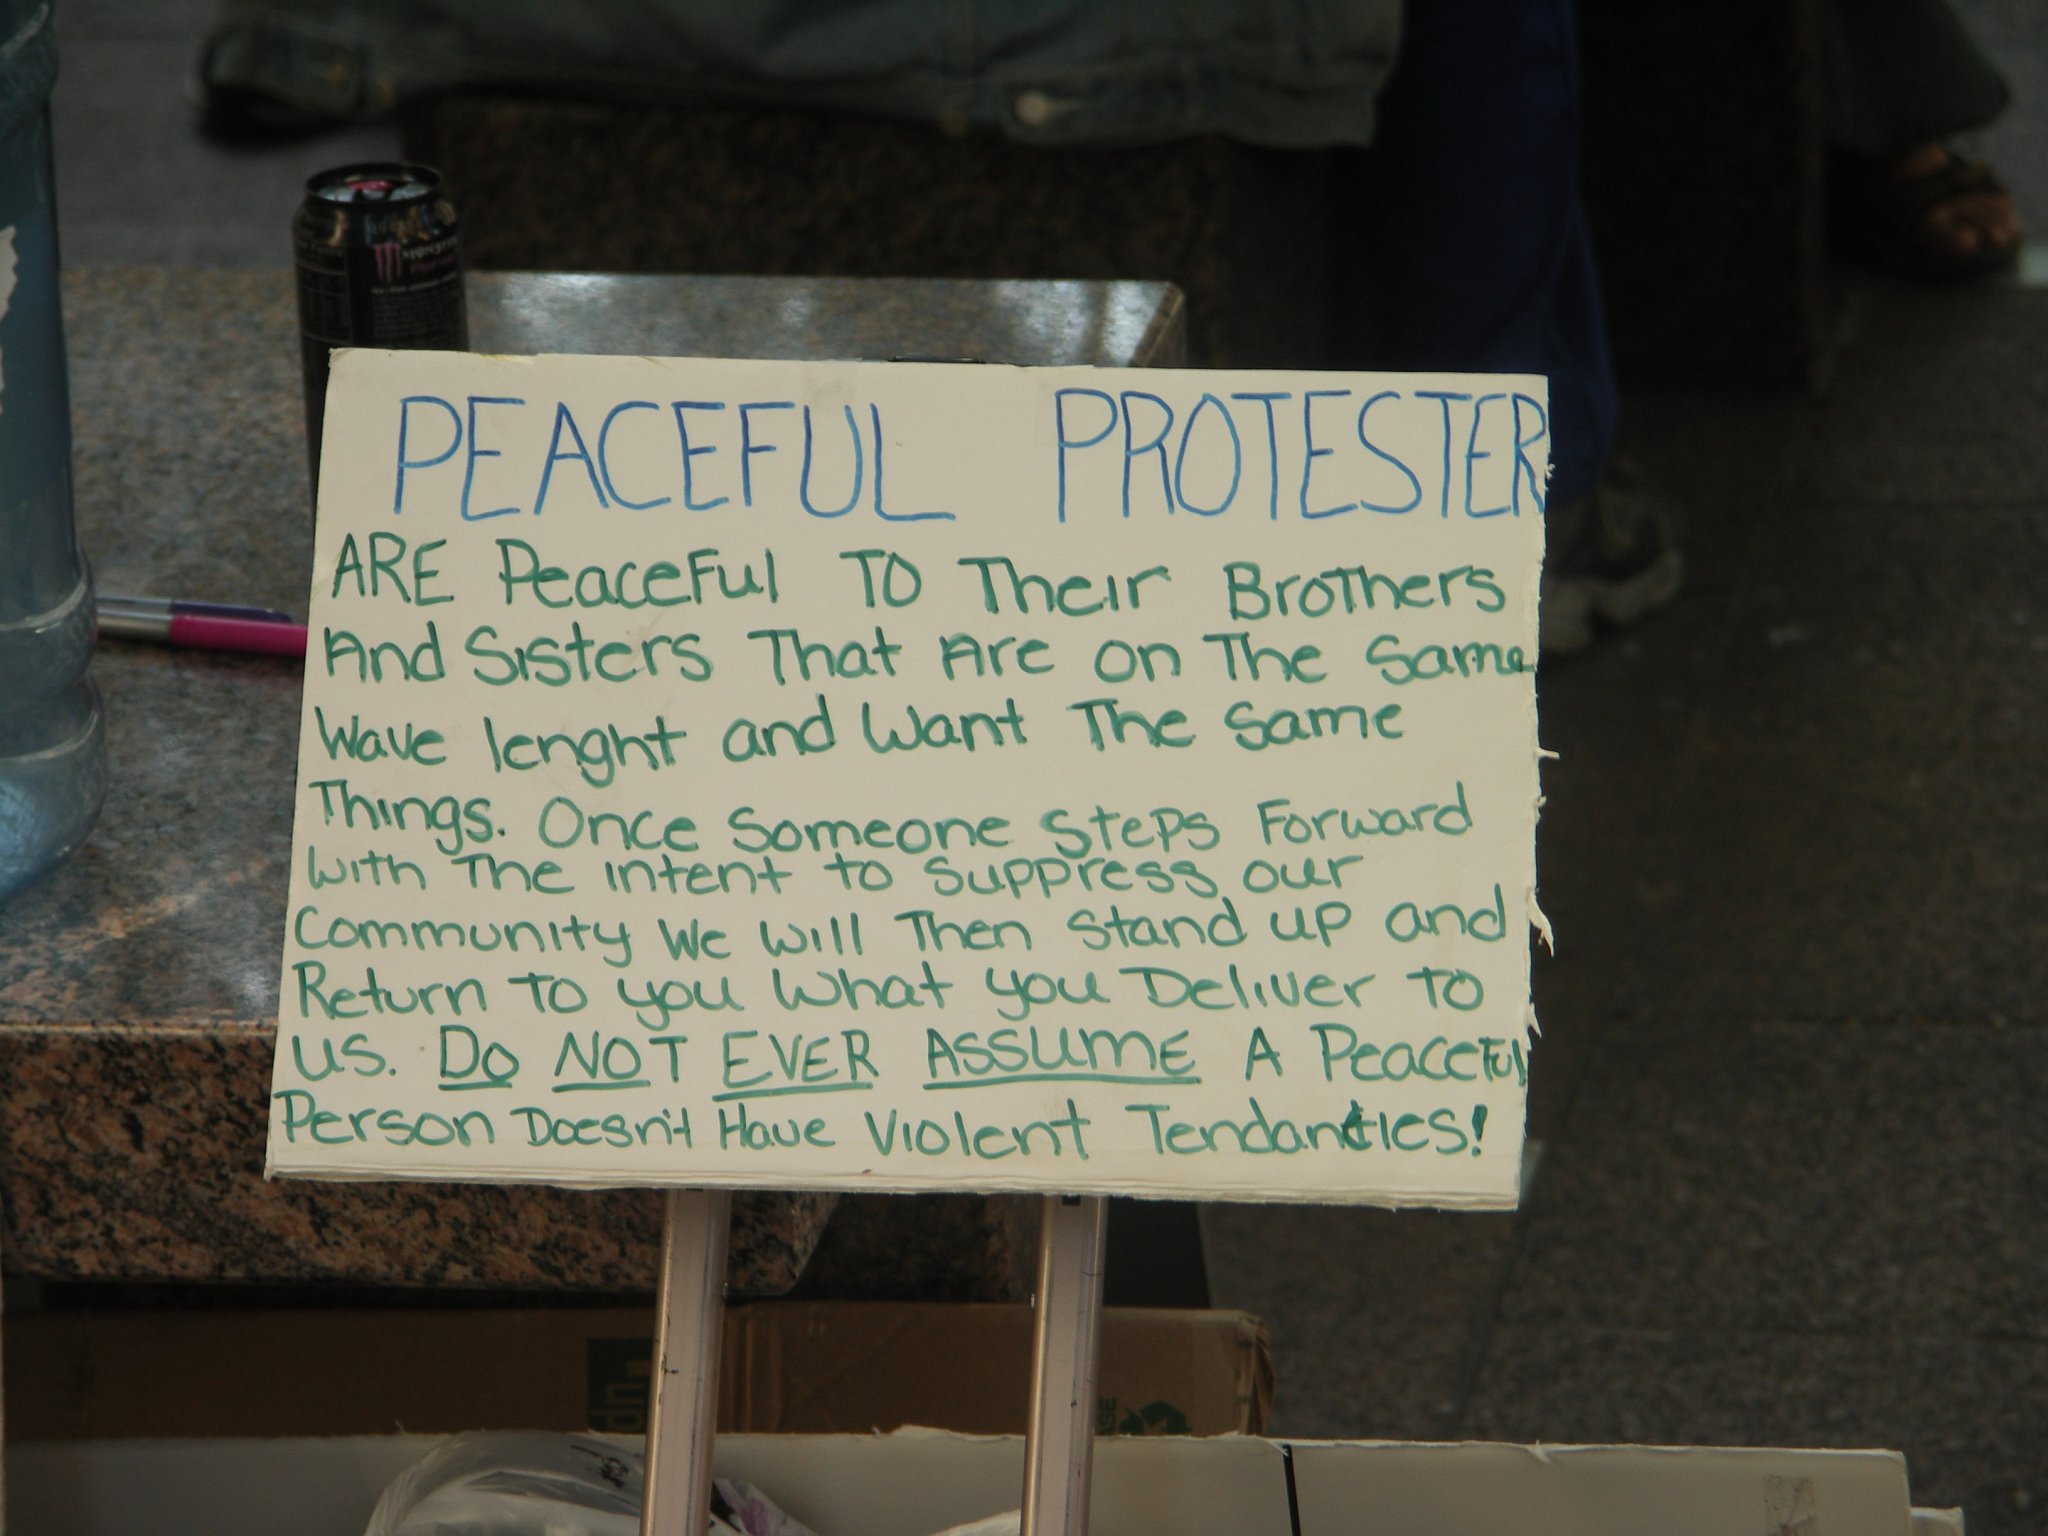 MONSTER
PEACEFUL PROTESTER
ARE PeaceFul TO Their Brothers
And Sisters That Are on The Same
Wave lenght and Want The Same
Things. Once Someone Steps Forward
With The intent to Suppress our
Community We Will Then Stand up and
Return to you What you Deliver to
us. Do NOT EVER ASSUME A Peaceful
Person Doesn't Have Violent Tendancties!